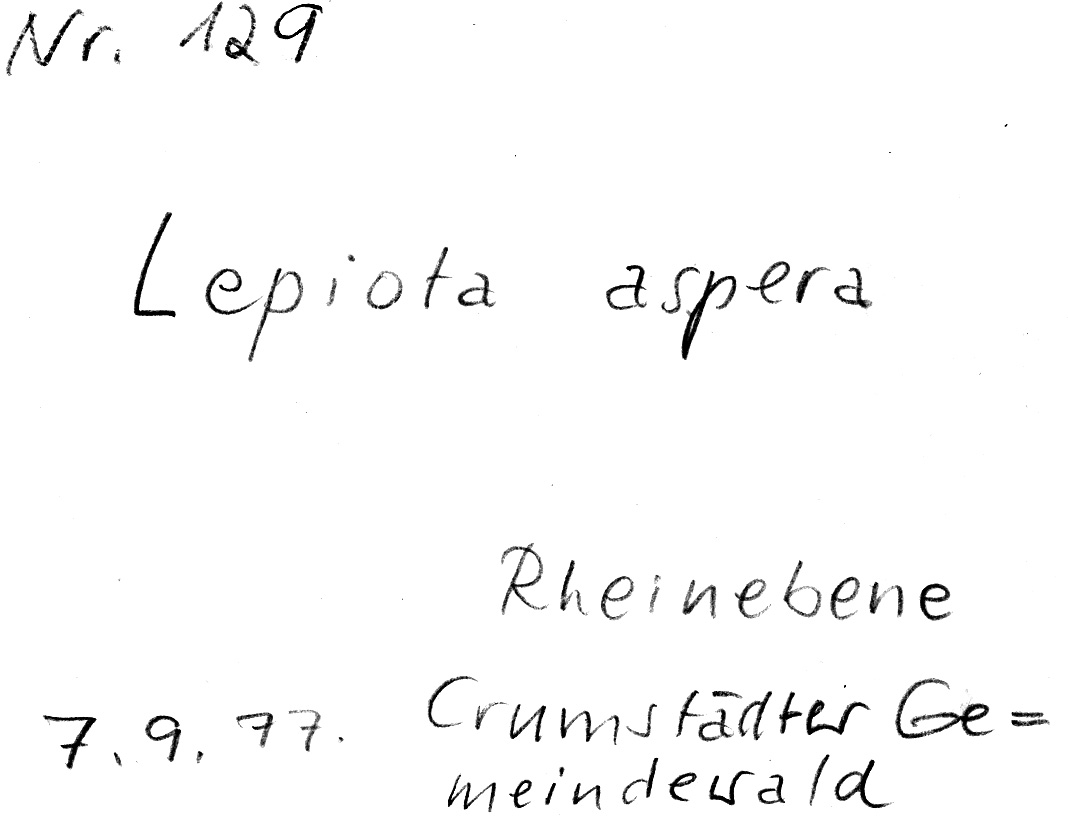 Nr. 129
Lepiota aspera
Rheinebene
7.9.77. Crumstädter Ge=
meindewald